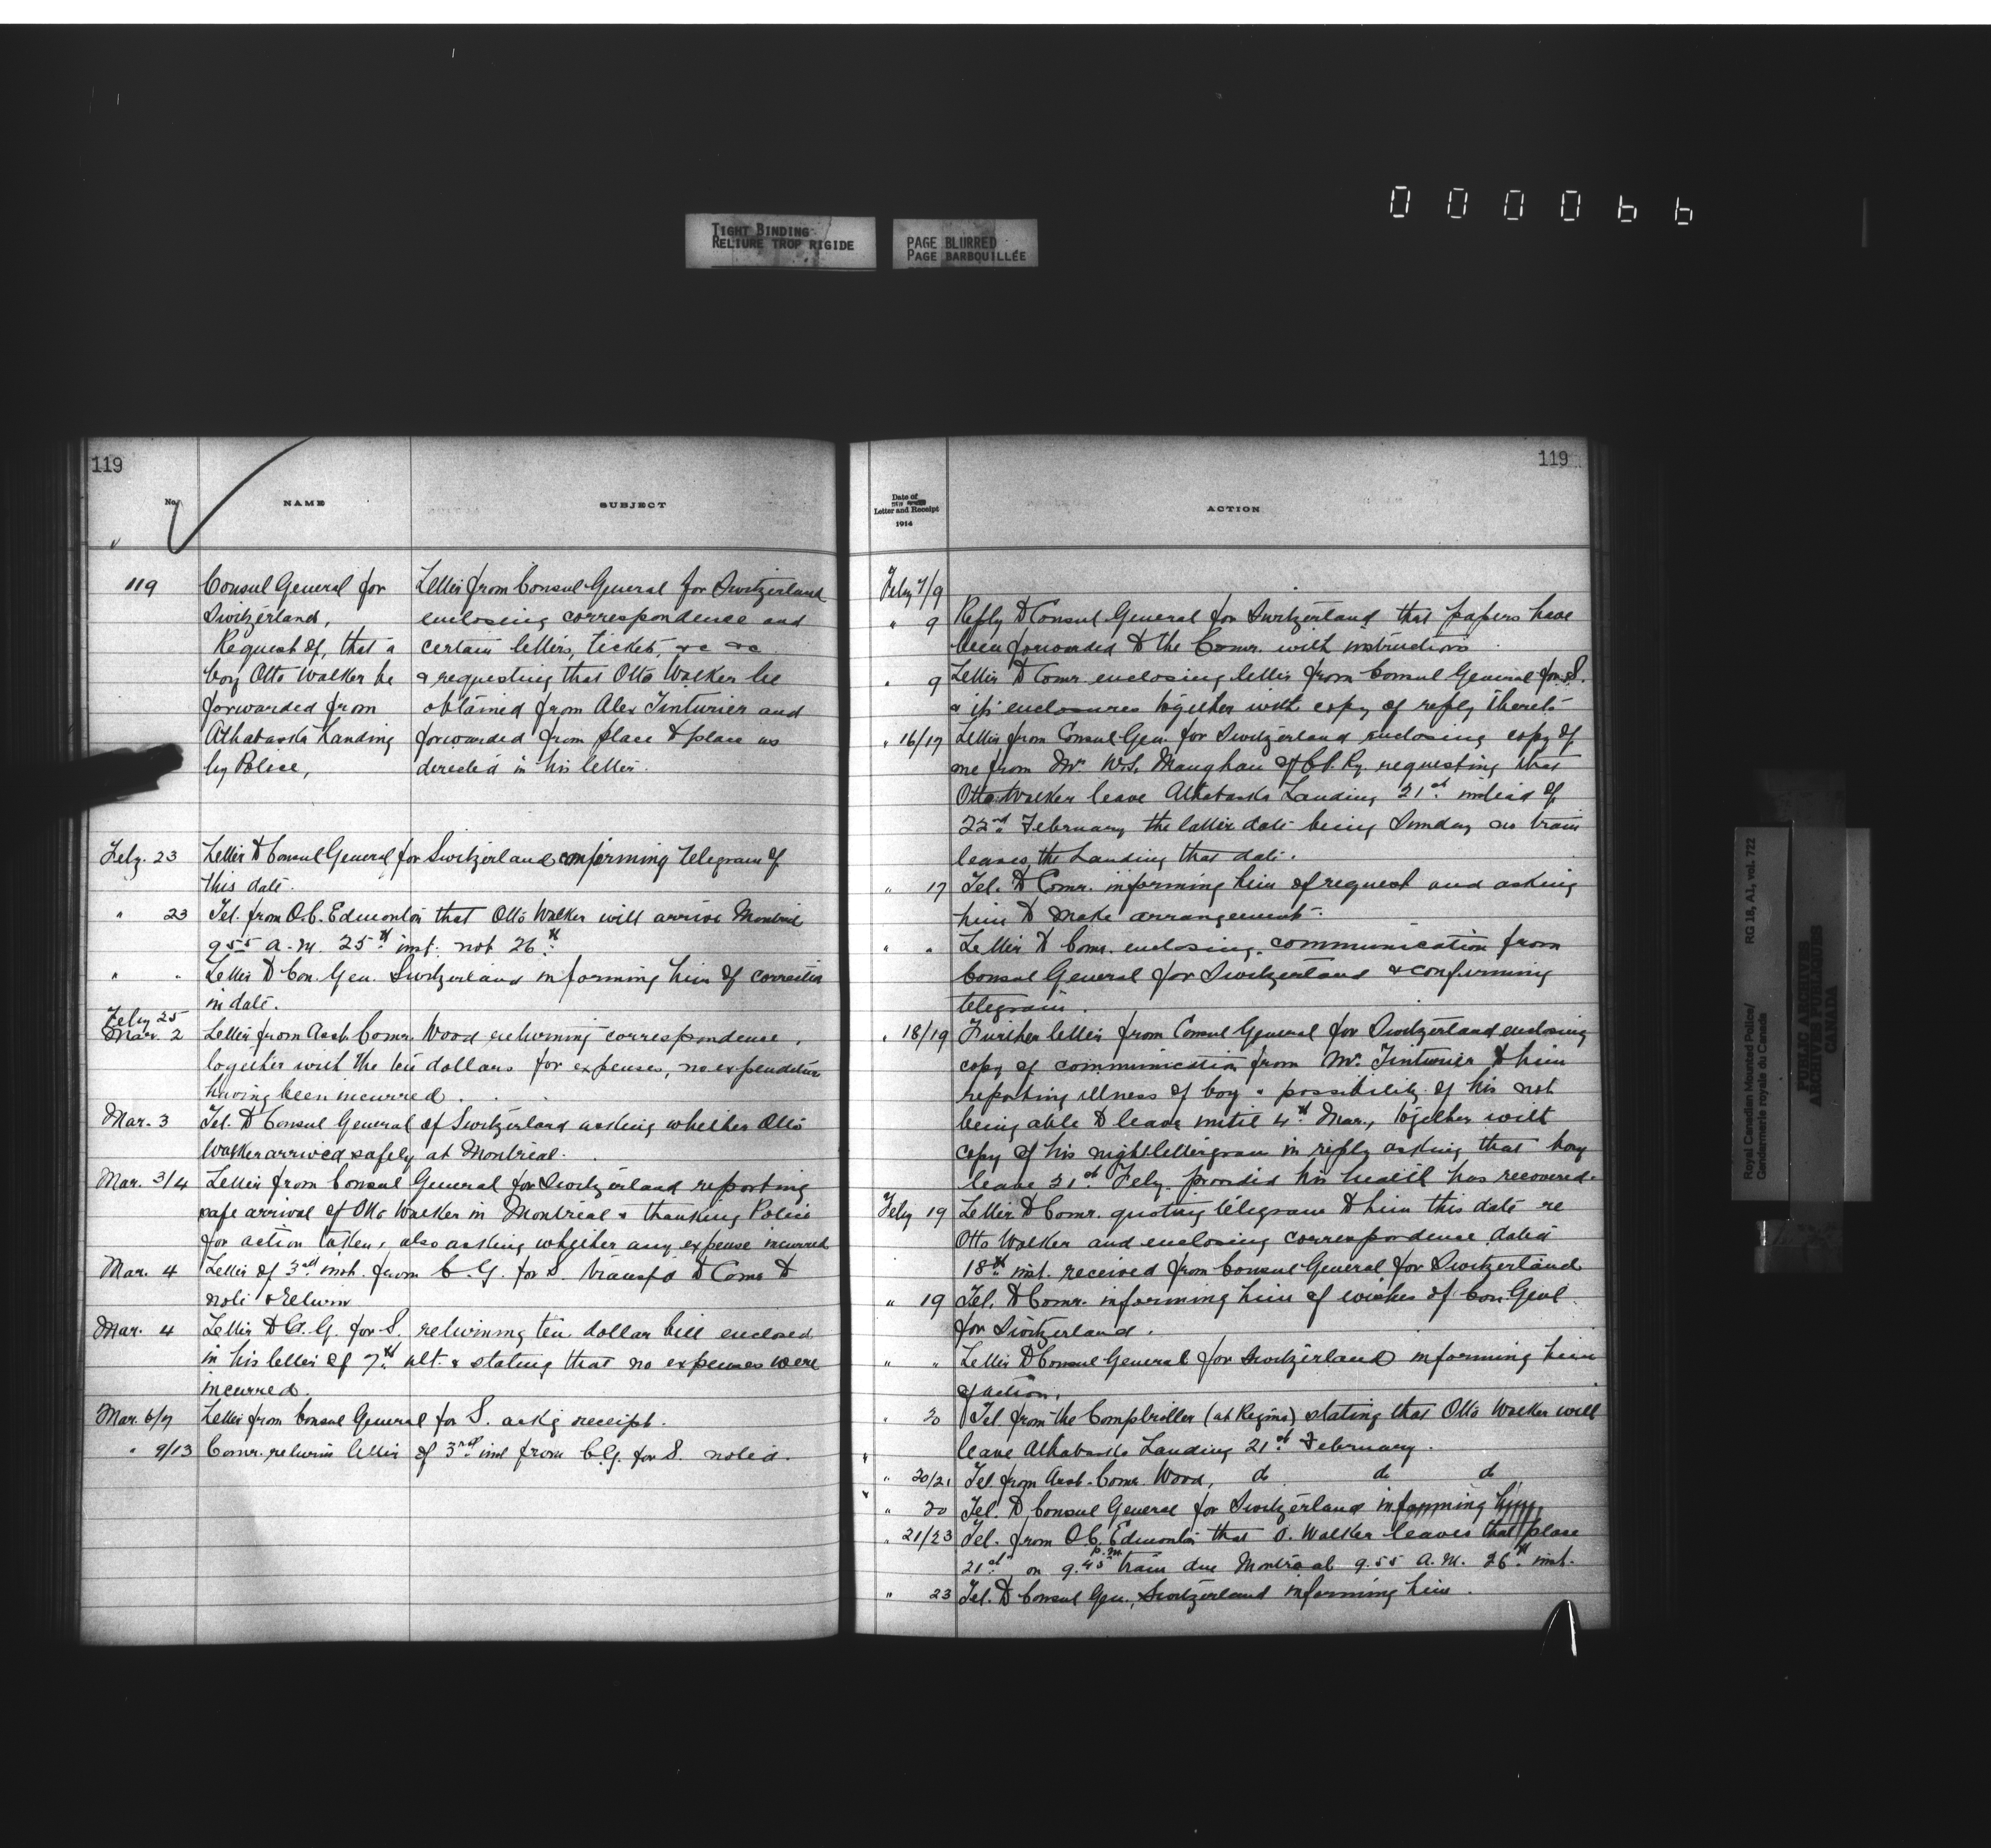 000066
TIGHT BINDING
RELIURE TROP RIGIDE
PAGE BLURRED
PAGE BARBOUILLÉE
119
No.
NAME
SUBJECT
119
Consul General for
Switzerland,
Request of, that a
boy Otto Walker be
forwarded from
Athabaska Landing
by Police,
Letter from Consul General for Switzerland
enclosing correspondence and
certain letters, ticket, &c &c
& requesting that Otto Walker be
obtained from Alex Tinturier and
forwarded from place to place as
directed in his letter.
Feby. 23 Letter to Consul General for Switzerland confirming telegram of
this date.
" 23 Tel. from O.C. Edmonton that Otto Walker will arrive Montreal
9 55 a.m. 25th inst. not 26th
" " Letter to Con. Gen. Switzerland informing him of correction
in date.
Feby 25
Mar. 2 Letter from Asst. Comr. Wood returning correspondence,
together with the ten dollars for expenses, no expenditure
having been incurred.
Mar. 3 Tel. to Consul General of Switzerland asking whether Otto
Walker arrived safely at Montreal.
Mar. 3/4 Letter from Consul General for Switzerland reporting
safe arrival of Otto Walker in Montreal & thanking Police
for action taken, also asking whether any expense incurred
Mar. 4 Letter of 3rd inst. from C.G. for S. transfd to Comr to
note & return
Mar. 4 Letter to C.G. for S. returning ten dollar bill enclosed
in his letter of 7th ult. & stating that no expenses were
incurred.
Mar. 6/7 Letter from Consul General for S. ackg receipt.
" 9/13 Comr. returns letter of 3rd inst from C.G. for S. noted.
119
Date of
Letter and Receipt
1914
ACTION
Feby 7/9
" 9 Reply to Consul General for Switzerland that papers have
been forwarded to the Comr. with instructions
" 9 Letter to Comr enclosing letter from Consul General for S.
& its enclosures together with copy of reply thereto
" 16/17 Letter from Consul Gen. for Switzerland enclosing copy of
one from Mr. W.S. Maughan of C.P. Ry. requesting that
Otto Walker leave Athabaska Landing 21st instead of
22nd February the latter date being Sunday no train
leaves the Landing that date.
" 17 Tel. to Comr. informing him of request and asking
him to make arrangements.
" " Letter to Comr. enclosing communication from
Consul General for Switzerland & confirming
telegram.
" 18/19 Further letter from Consul General for Switzerland enclosing
copy of communication from Mr. Tinturier to him
reporting illness of boy & possibility of his not
being able to leave until 4th Mar., together with
copy of his nightlettergram in reply asking that boy
leave 21st Feby. provided his health has recovered.
Feby 19 Letter to Comr. quoting telegram to him this date re
Otto Walker and enclosing correspondence dated
18th inst. received from Consul General for Switzerland
" 19 Tel. to Comr. informing him of wishes of Con. Genl
for Switzerland.
" " Letter to Consul General for Switzerland informing him
of action.
" 20 Tel. from the Comptroller (at Regina) stating that Otto Walker will
leave Athabaska Landing 21st February.
" 20/21 Tel from Asst. Comr. Wood, do do do
" 20 Tel. to Consul General for Switzerland informing him
" 21/23 Tel. from O.C. Edmonton that O. Walker leaves that place
21st on 9.45 p.m. train due Montreal 9.55 A.M. 26th inst.
" 23 Tel. to Consul Gen., Switzerland informing him.
Royal Canadian Mounted Police/
Gendarmerie royale du Canada
RG 18, A1, vol. 722
PUBLIC ARCHIVES
ARCHIVES PUBLIQUES
CANADA